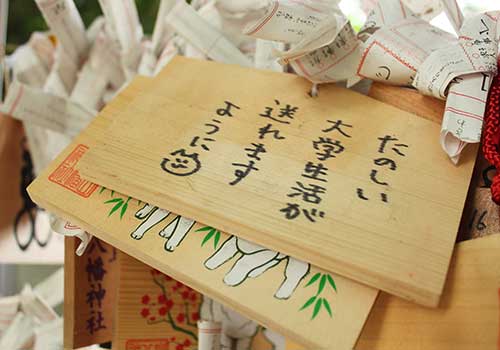 たのしい
大学生活が
送れます
ように
幡神社